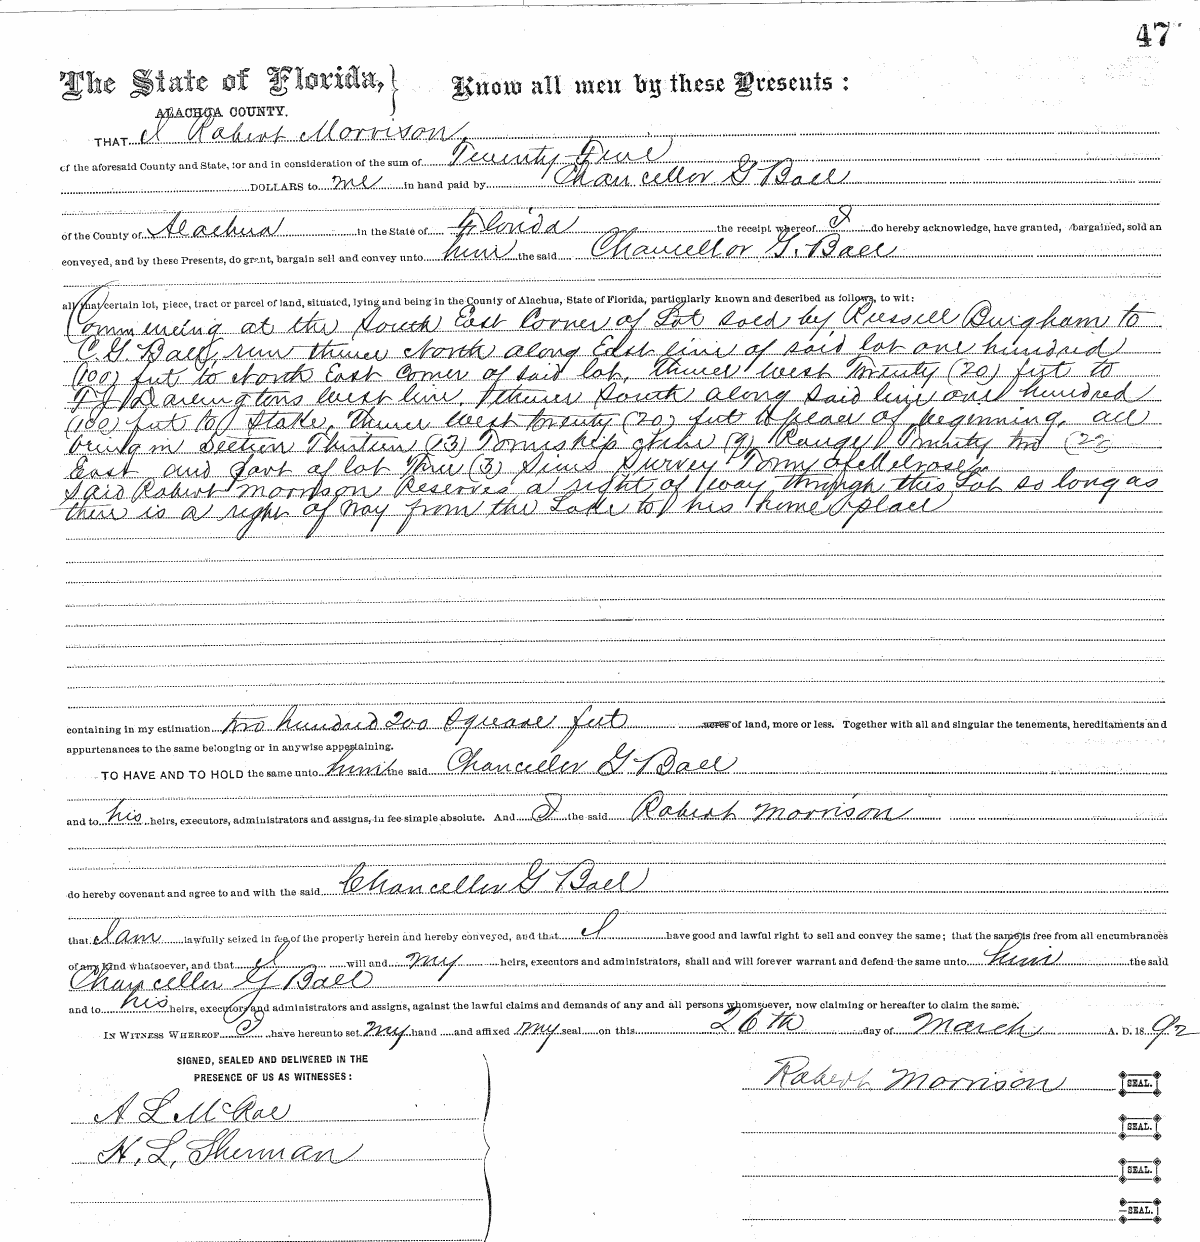 47
The State of Florida,} Know all men by these Presents:
ALACHUA COUNTY.
THAT I Robert Morrison
of the aforesaid County and State, for and in consideration of the sum of Twenty Five
DOLLARS to me in hand paid by Chancellor G Ball
of the County of Alachua in the State of Florida the receipt whereof I do hereby acknowledge, have granted, bargained, sold an
conveyed, and by these Presents, do grant, bargain sell and convey unto him the said Chancellor G. Ball
all that certain lot, piece, tract or parcel of land, situated, lying and being in the County of Alachua, State of Florida, particularly known and described as follows, to wit:
Commencing at the South East Corner of Lot sold by Russell Bingham to
C. G. Ball, run thence North along East line of said lot one hundred
(100) feet to North East Corner of said lot, thence West Twenty (20) feet to
T J Darlingtons West line, thence South along said line one hundred
(100) feet to Stake, Thence West twenty (20) feet to place of beginning, all
being in Section Thirteen (13) Township Nine (9) Range Twenty two (22
East and part of lot Three (3) Sims Survey Town of Melrose.
Said Robert Morrison Reserves a right of way through this Lot so long as
there is a right of way from the Lake to his home place
containing in my estimation two hundred 200 Square feet acres of land, more or less. Together with all and singular the tenements, hereditaments and
appurtenances to the same belonging or in anywise appertaining.
TO HAVE AND TO HOLD the same unto him the said Chancellor G Ball
and to his heirs, executors, administrators and assigns, in fee simple absolute. And I the said Robert Morrison
do hereby covenant and agree to and with the said Chancellor G Ball
that I am lawfully seized in fee of the property herein and hereby conveyed, and that I have good and lawful right to sell and convey the same; that the same is free from all encumbrances
of any kind whatsoever, and that I will and my heirs, executors and administrators, shall and will forever warrant and defend the same unto him the said
Chancellor G Ball
and to his heirs, executors and administrators and assigns, against the lawful claims and demands of any and all persons whomsoever, now claiming or hereafter to claim the same.
IN WITNESS WHEREOF I have hereunto set my hand and affixed my seal on this 26th day of March A. D. 18 92
SIGNED, SEALED AND DELIVERED IN THE
PRESENCE OF US AS WITNESSES:
Robert Morrison SEAL.
A L McRae
SEAL.
H. L. Sherman
SEAL.
SEAL.